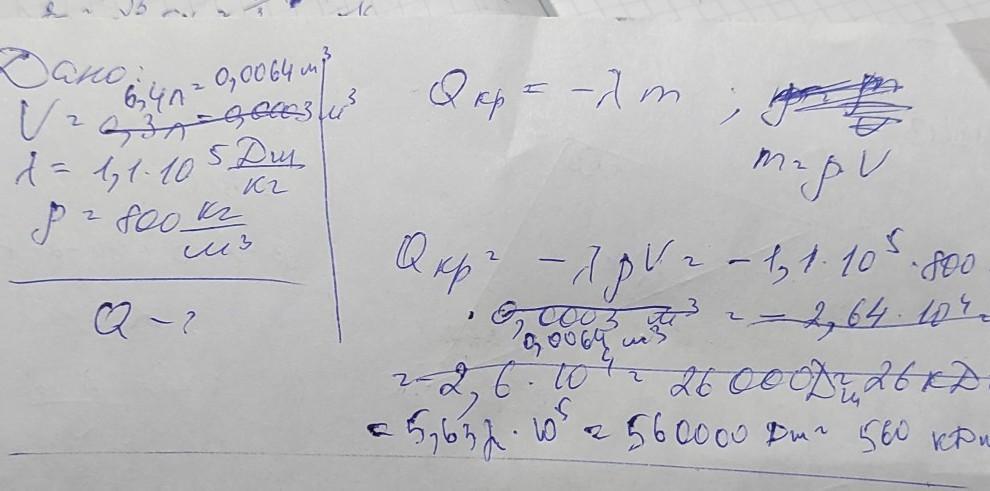 Дано:
6,4л = 0,0064 м³
V = 0,3л = 0,0003 м³
λ = 1,1·10⁵ Дж/кг
ρ = 800 кг/м³
Q - ?
Qкр = -λ m ;
m = ρV
Qкр = -λρV = -1,1·10⁵·800
· 0,0003 м³ = = 2,64·10⁴ =
0,0064 м³
= -2,6·10⁴ = 26000Дж = 26 кД
= 5,632·10⁵ = 560000 Дж = 560 кДж